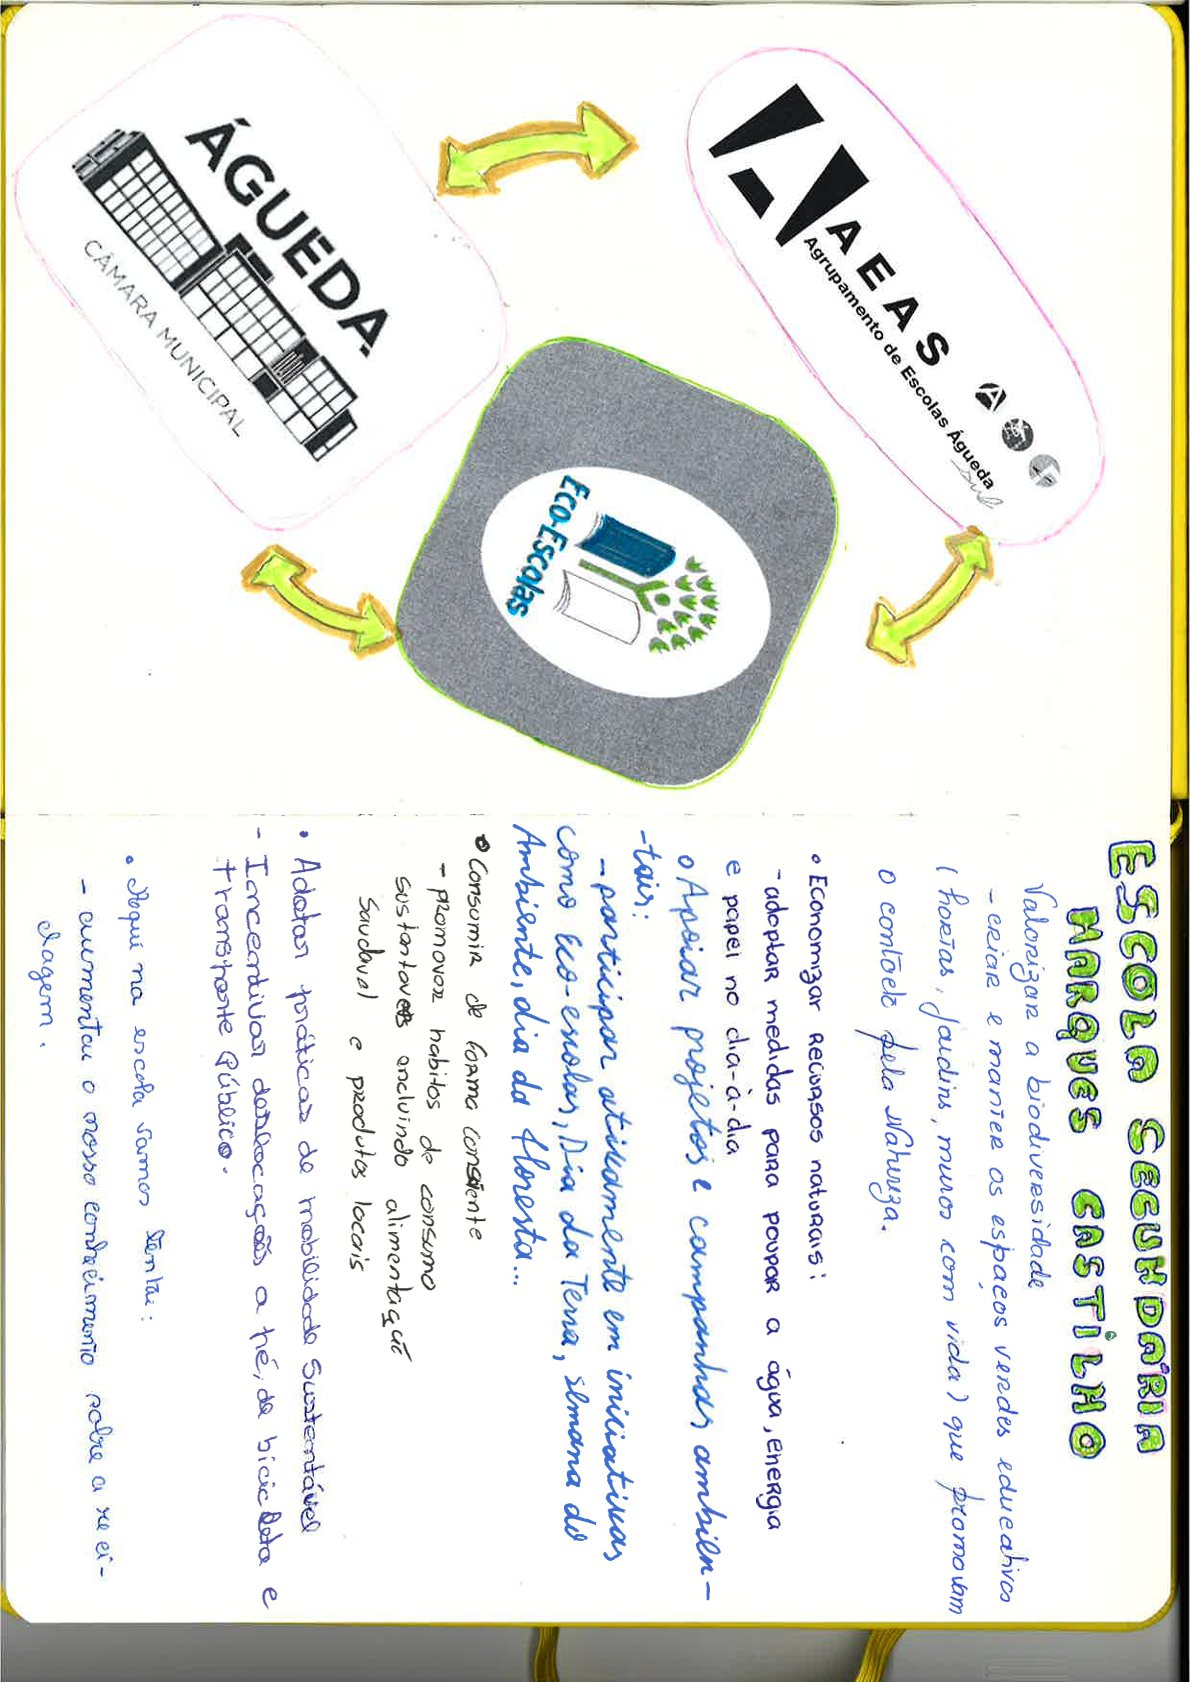 AEAS
Agrupamento de Escolas Águeda
Sul
ÁGUEDA
CÂMARA MUNICIPAL
Eco-Escolas
ESCOLA SECUNDÁRIA
MARQUES CASTILHO
Valorizar a biodiversidade
- criar e manter os espaços verdes educativos
(hortas, jardins, muros com vida) que promovam
o contacto pela Natureza.
• Economizar Recursos naturais:
- adoptar medidas para poupar a água, energia
e papel no dia-à-dia
o Apoiar projetos e campanhas ambien-
-tais:
- participar ativamente em iniciativas
como Eco-escolas, Dia da Terra, semana do
Ambiente, dia da floresta...
• Consumir de forma consciente
- promover habitos de consumo
sustentáveis incluindo alimentaçã
saudavel e produtos locais
• Adotar práticas de mobilidade sustentável
- Incentivar deslocações a pé, de bicicleta e
transporte Público.
• Aqui na escola vamos tentar:
- aumentar o nosso conhecimento sobre a reci-
clagem.